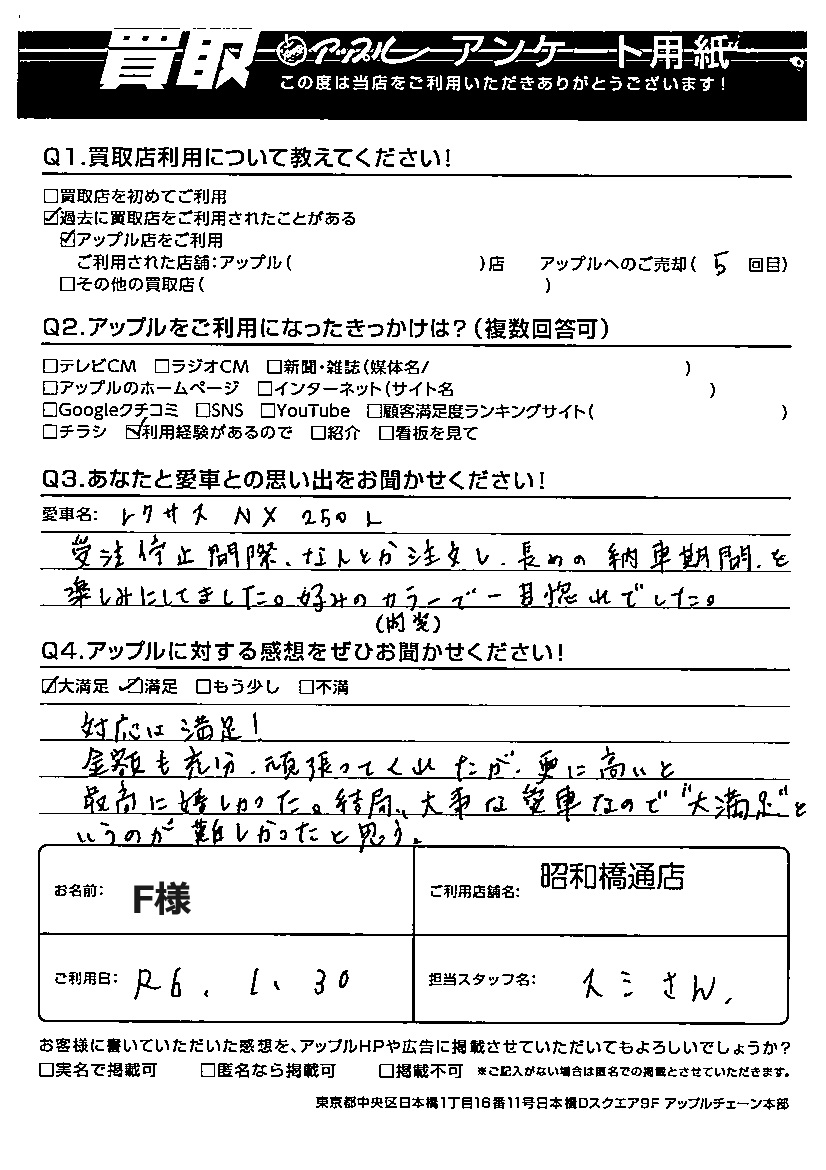 買取 アップル アンケート用紙
この度は当店をご利用いただきありがとうございます!
Q1.買取店利用について教えてください!
□買取店を初めてご利用
☑過去に買取店をご利用されたことがある
☑アップル店をご利用
ご利用された店舗:アップル( )店 アップルへのご売却( 5 回目)
□その他の買取店( )
Q2.アップルをご利用になったきっかけは?(複数回答可)
□テレビCM □ラジオCM □新聞・雑誌(媒体名/ )
□アップルのホームページ □インターネット(サイト名 )
□Googleクチコミ □SNS □YouTube □顧客満足度ランキングサイト( )
□チラシ ☑利用経験があるので □紹介 □看板を見て
Q3.あなたと愛車との思い出をお聞かせください!
愛車名: レクサス NX 250 L
受注停止間際、なんとか注文し、長めの納車期間を
楽しみにしてました。好みのカラーで一目惚れでした。
(内装)
Q4.アップルに対する感想をぜひお聞かせください!
☑大満足 ☑満足 □もう少し □不満
対応は満足!
金額も充分、頑張ってくれたが、更に高いと
最高に嬉しかった。結局、大事な愛車なので"大満足"と
いうのが難しかったと思う。
お名前: F様 ご利用店舗名: 昭和橋通店
ご利用日: R6、1、30 担当スタッフ名: スミさん、
お客様に書いていただいた感想を、アップルHPや広告に掲載させていただいてもよろしいでしょうか?
□実名で掲載可 □匿名なら掲載可 □掲載不可 ※ご記入がない場合は匿名での掲載とさせていただきます。
東京都中央区日本橋1丁目16番11号日本橋Dスクエア9F アップルチェーン本部